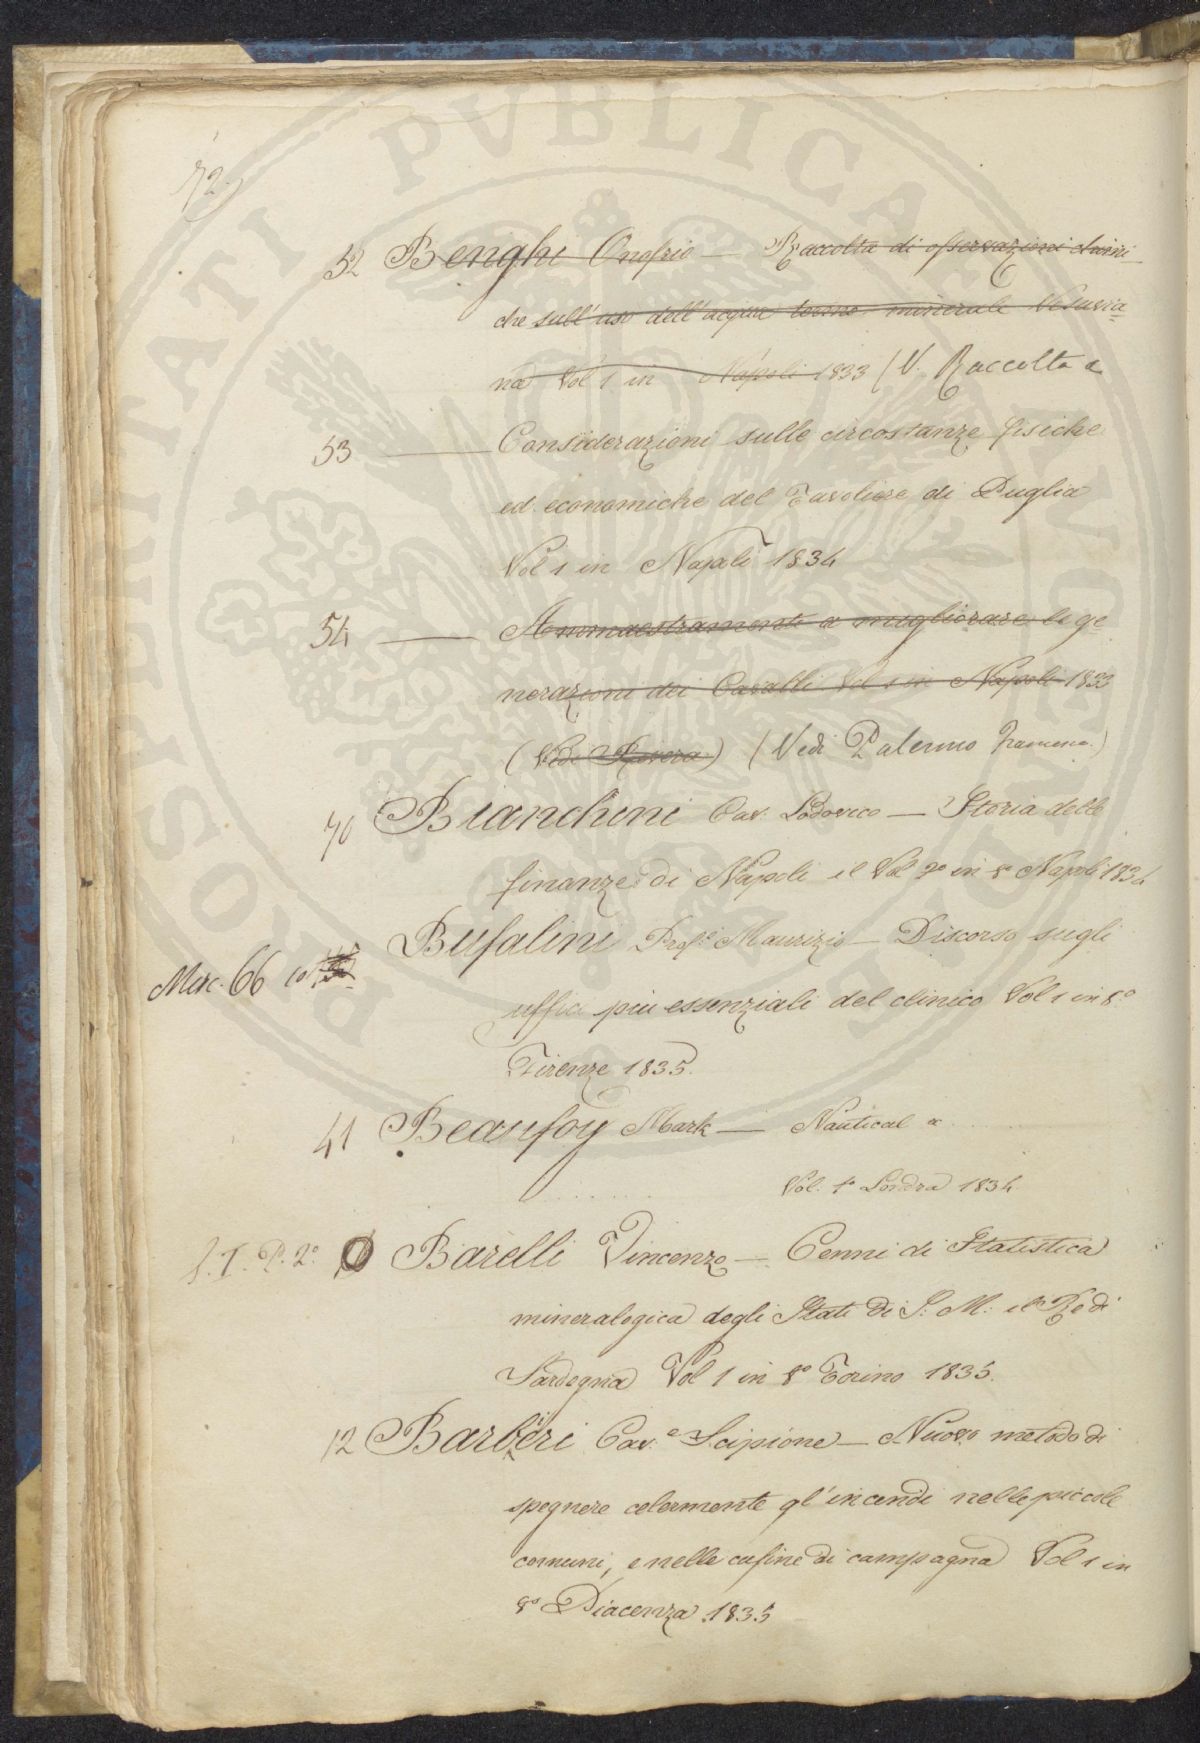 72
52 Benghi Onofrio — Raccolta di osservazioni chimi-
che sull'uso dell'acqua termo-minerale Vesuvia=
na Vol 1 in Napoli 1833 (V. Raccolta a
53 — Considerazioni sulle circostanze fisiche
ed economiche del Tavoliere di Puglia
Vol 1 in Napoli 1834
54 — Ammaestramenti a migliorare le ge=
nerazioni dei Cavalli Vol 1 in Napoli 1833
(Vedi Rivera) (Vedi Palermo
70 Bianchini Cav. Lodovico — Storia delle
finanze di Napoli il Vol 2º in 8º Napoli 1834
Misc. 66 Bufalini Profe Maurizio — Discorso sugli
uffici piu essenziali del clinico Vol 1 in 8.º
Firenze 1835.
41 Beaufoy Mark — Nautical a
Vol. 1º Londra 1834
P. 2º Barelli Vincenzo — Cenni di Statistica
mineralogica degli Stati di S. M. il Re di
Sardegna Vol 1 in 8º Torino 1835.
12 Barberi Cav.e Scipione — Nuovo metodo di
spegnere celermente gl'incendi nelle piccole
comuni, e nelle casine di campagna Vol 1 in
8º Piacenza 1835
PROSPERITATI PVBLICAE